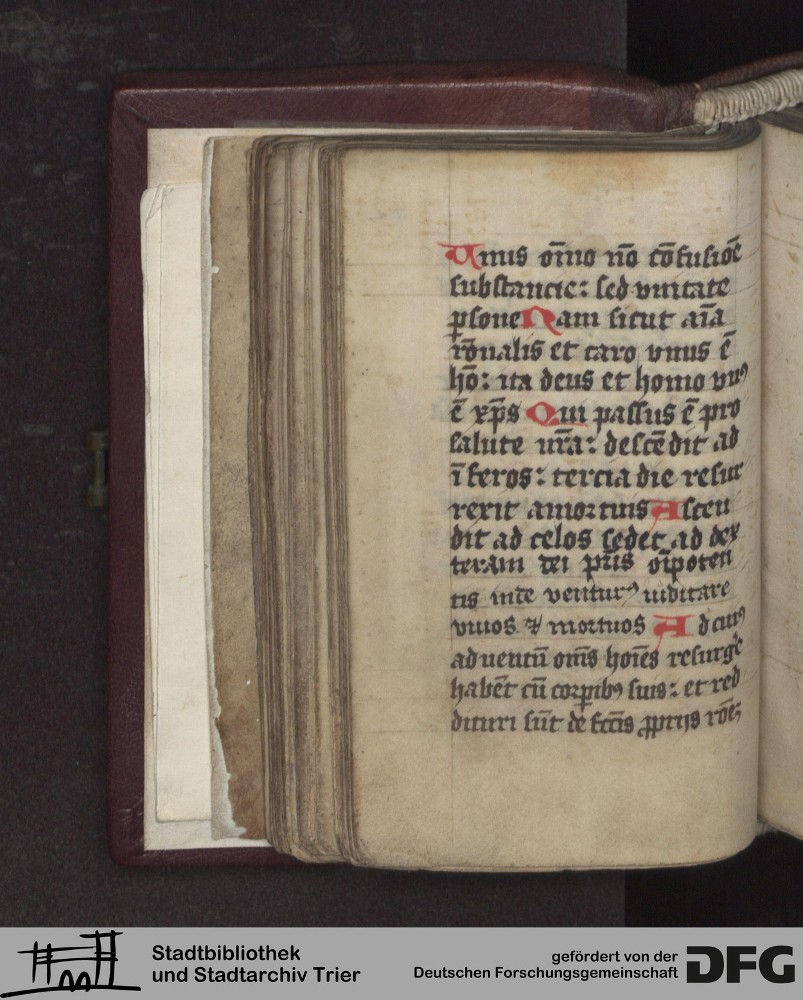 Unus om̄no nō cōfusiōe
substancie: sed vnitate
ꝑsone Nam sicut aīa
rōnalis et caro vnus ē
hō: ita deus et homo vnꝰ
ē xp̄s Qui passus ē pro
salute nr̄a: descēdit ad
īferos: tercia die resur
rexit amortuis Ascen
dit ad celos sedet ad dex
teram dei pr̄is oīpoten
tis inde venturꝰ iudicare
viuos ⁊ mortuos Ad cuiꝰ
aduentū om̄s hoīes resurgēͤ
habēt cū corꝑibꝯ suis: et red
dituri sūt de fcīs ꝓprijs rōēꝫ
Stadtbibliothek
und Stadtarchiv Trier
gefördert von der
Deutschen Forschungsgemeinschaft
DFG